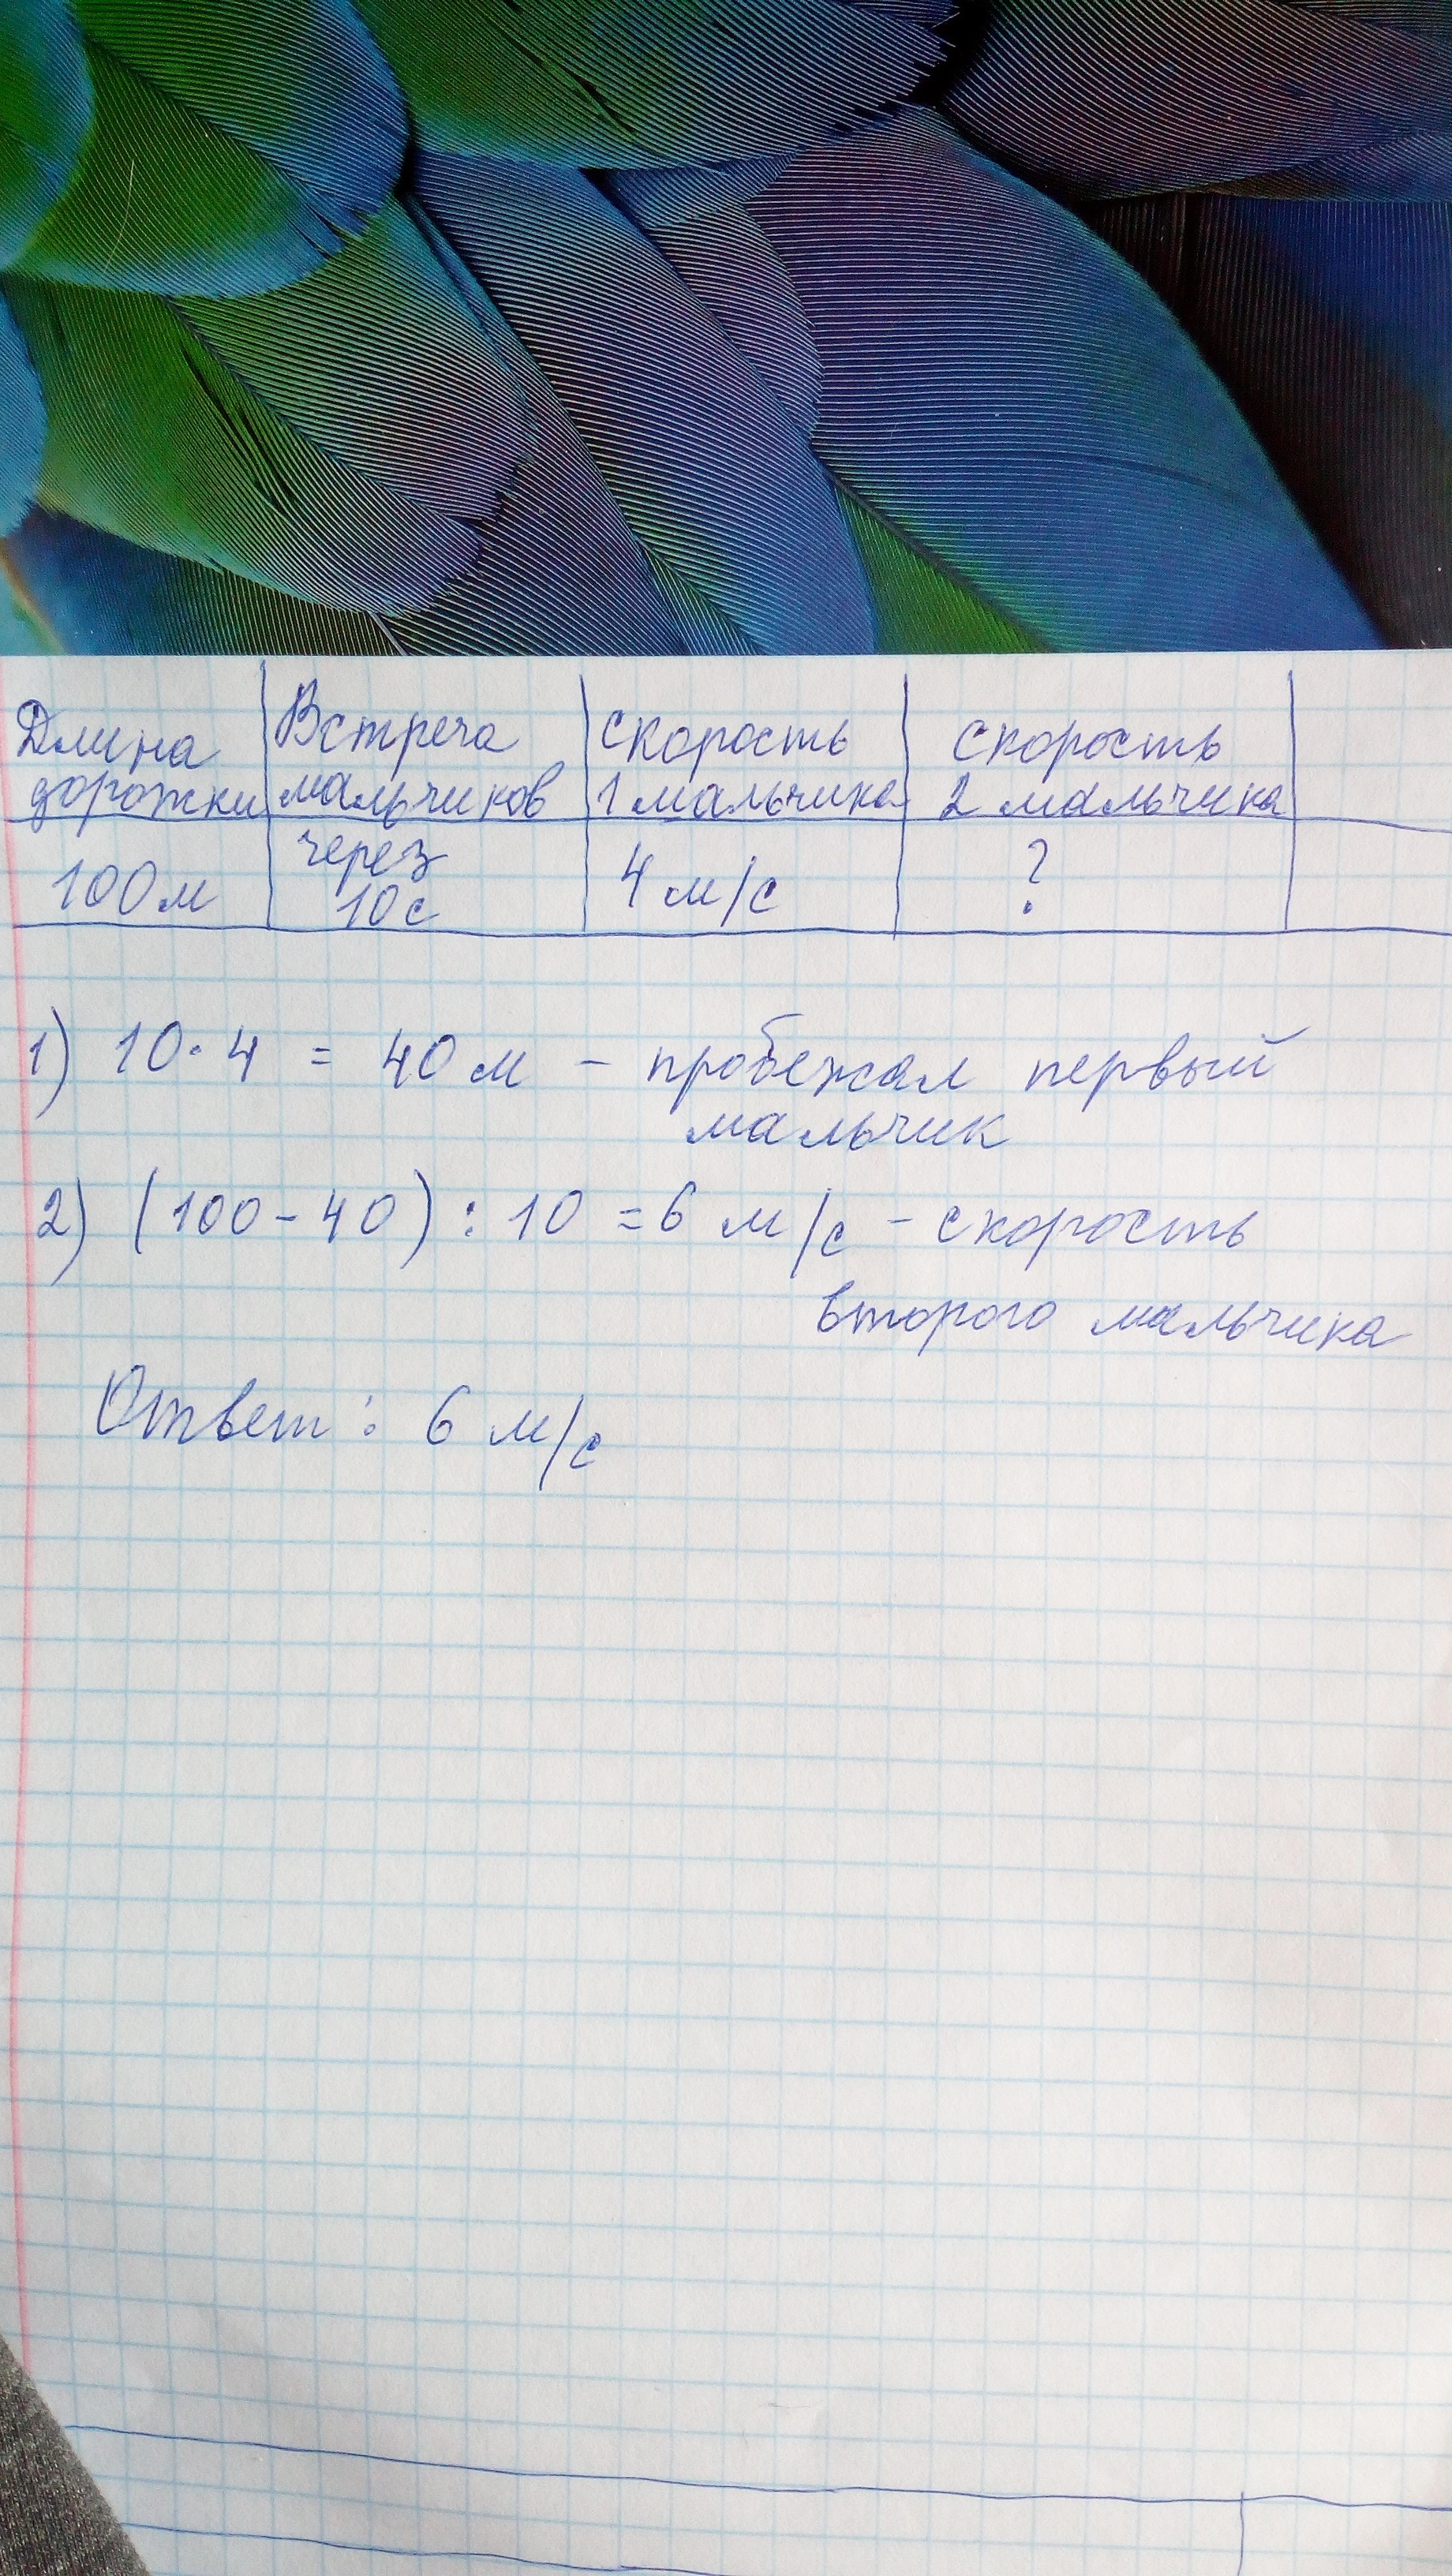 Длина Встреча скорость скорость
дорожки мальчиков 1 мальчика 2 мальчика
100м через 10с 4 м/с ?
1) 10·4 = 40 м – пробежал первый
мальчик
2) (100-40) : 10 = 6 м/с – скорость
второго мальчика
Ответ: 6 м/с